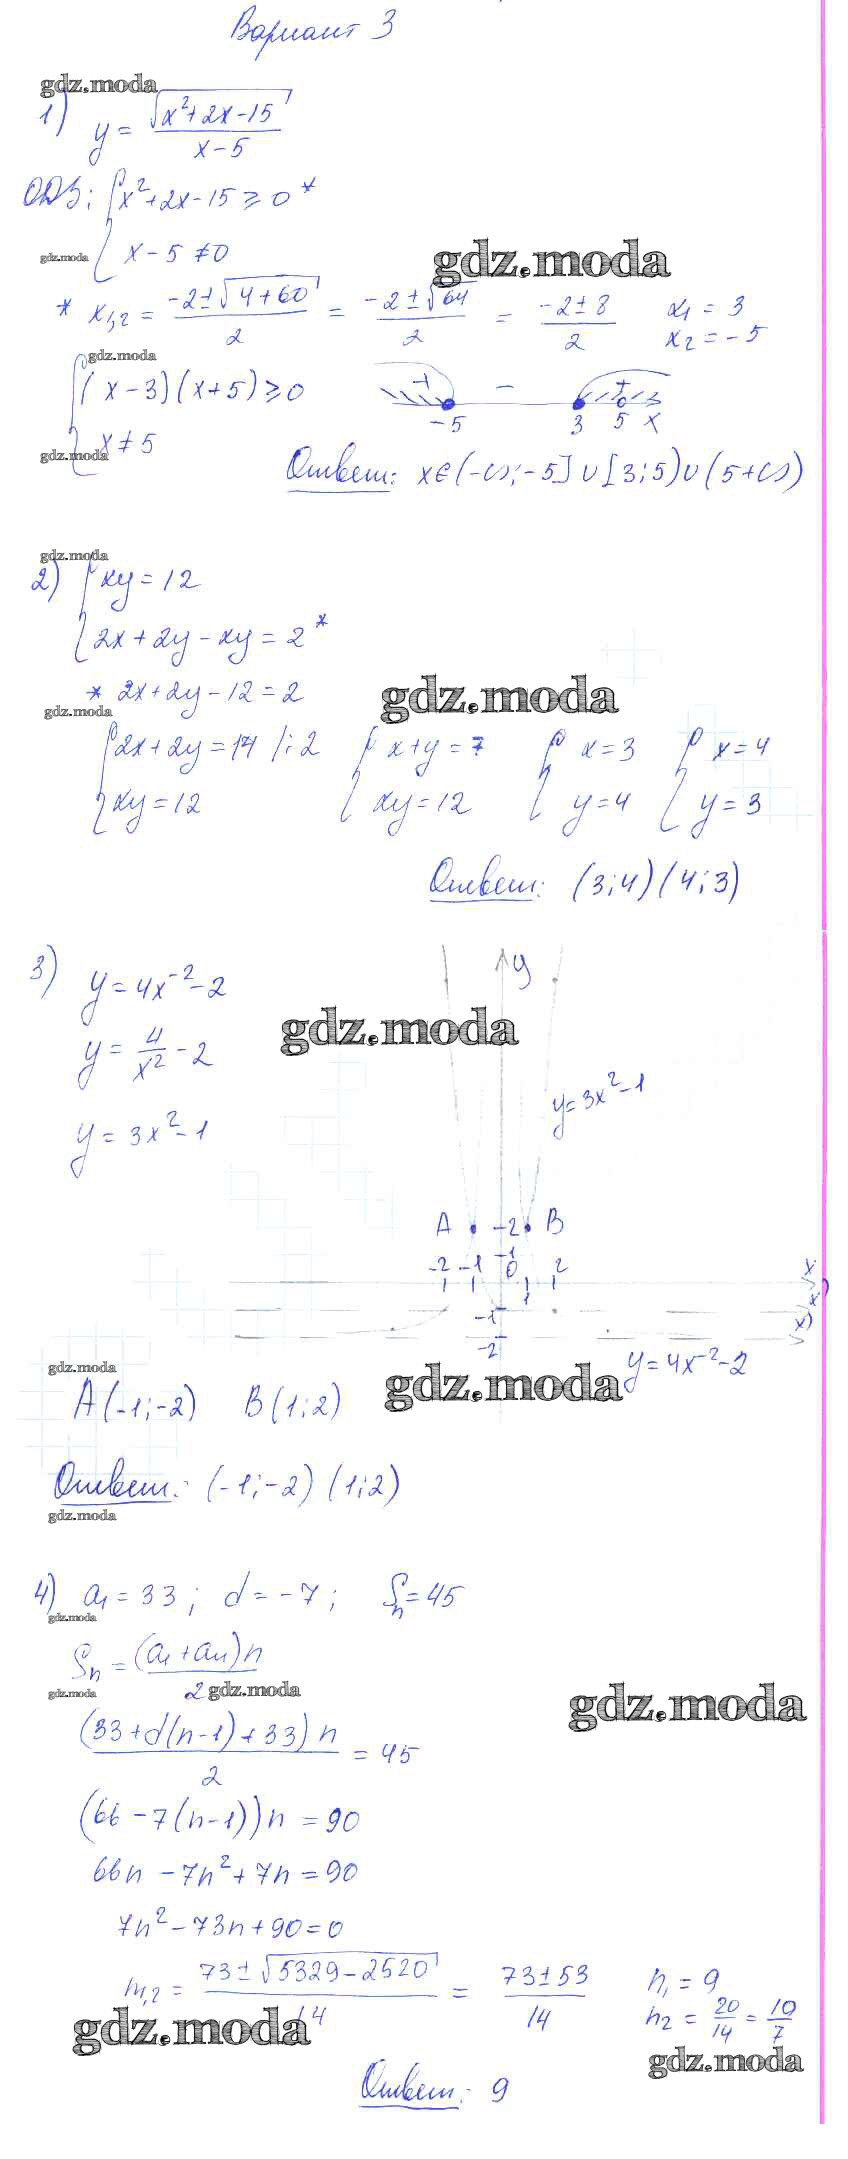 Вариант 3
gdz.moda
1) y = √(x²+2x-15) / (x-5)
ОДЗ: { x²+2x-15 ≥ 0 *
gdz.moda { x-5 ≠ 0 gdz.moda
* x₁,₂ = (-2±√(4+60))/2 = (-2±√64)/2 = (-2±8)/2 x₁ = 3
x₂ = -5
gdz.moda
{ (x-3)(x+5) ≥ 0 + - +
-5 3 5 x
{ x ≠ 5
gdz.moda
Ответ: x∈(-∞;-5]∪[3;5)∪(5+∞)
gdz.moda
2) { xy = 12
{ 2x+2y-xy = 2 *
* 2x+2y-12 = 2
gdz.moda gdz.moda
{ 2x+2y = 14 |:2 { x+y = 7 { x = 3 { x = 4
{ xy = 12 { xy = 12 { y = 4 { y = 3
Ответ: (3;4) (4;3)
3) y = 4x⁻²-2
y
gdz.moda
y = 4/x² - 2
y = 3x²-1
y = 3x²-1
A -2 B
-2 -1 -1 0 1 2 x
x
-1 x
-2
y = 4x⁻²-2
gdz.moda gdz.moda
A(-1;-2) B(1;2)
Ответ: (-1;-2) (1;2)
gdz.moda
4) a₁ = 33; d = -7; Sₙ = 45
gdz.moda
Sₙ = (a₁+aₙ)n / 2
gdz.moda gdz.moda gdz.moda
(33+d(n-1)+33)n / 2 = 45
(66-7(n-1))n = 90
66n-7n²+7n = 90
7n²-73n+90 = 0
n₁,₂ = (73±√(5329-2520))/14 = (73±53)/14 n₁ = 9
n₂ = 20/14 = 10/7
gdz.moda gdz.moda
Ответ: 9